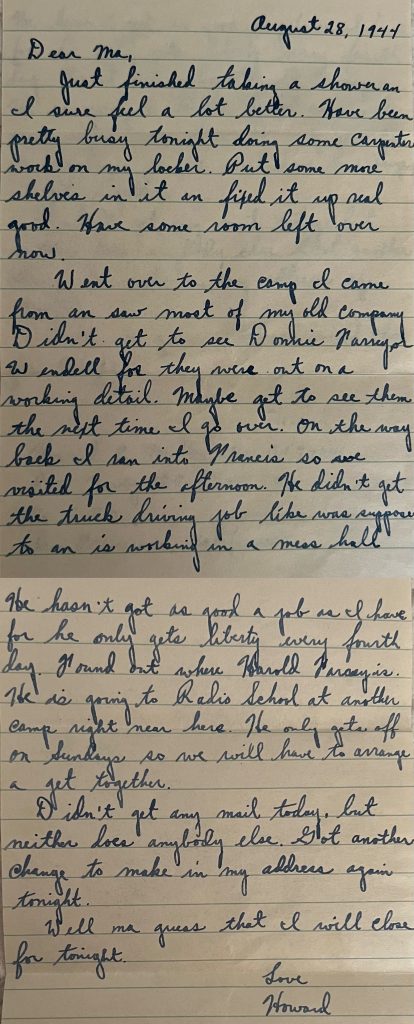 August 28, 1944
Dear Ma,
Just finished taking a shower an
I sure feel a lot better. Have been
pretty busy tonight doing some carpenter
work on my locker. Put some more
shelves in it an fixed it up real
good. Have some room left over
now.
Went over to the camp I came
from an saw most of my old company
Didn't get to see Donnie or
Wendell for they were out on a
working detail. Maybe get to see them
the next time I go over. On the way
back I ran into Francis so we
visited for the afternoon. He didn't get
the truck driving job like was suppose
to an is working in a mess hall
He hasn't got as good a job as I have
for he only gets liberty every fourth
day. Found out where Harold is.
He is going to Radio School at another
camp right near here. He only gets off
on Sundays so we will have to arrange
a get together.
Didn't get any mail today, but
neither does anybody else. Got another
change to make in my address again
tonight.
Well ma guess that I will close
for tonight.
Love
Howard